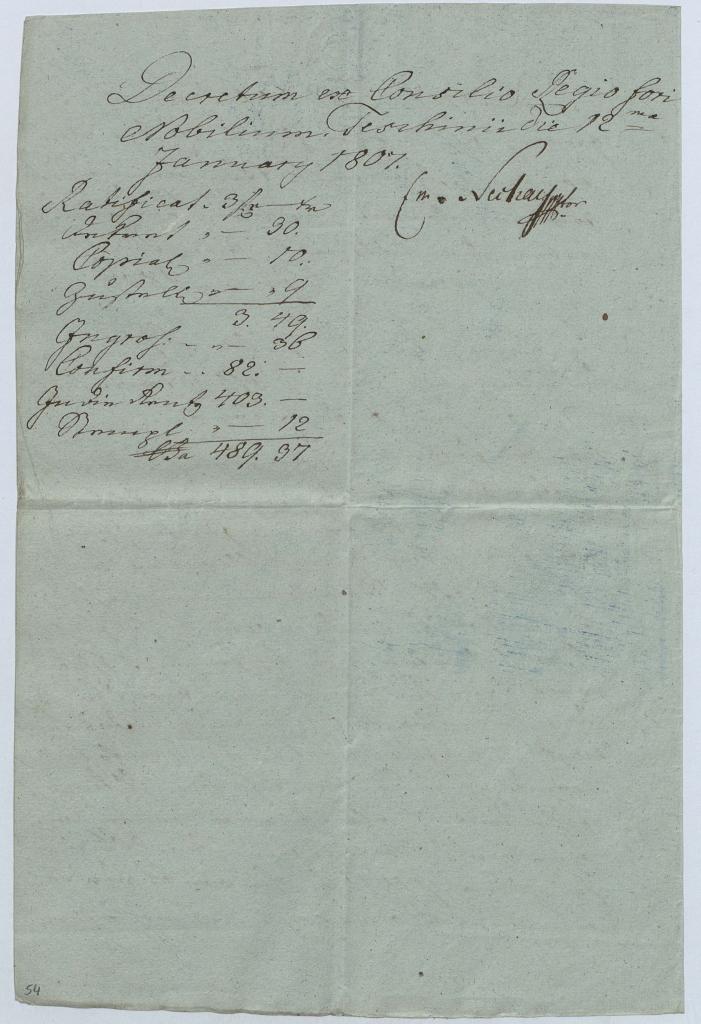 Decretum ex Consilio Regio fori
Nobilium. Teschinii die 12ma
January 1807.
Ratificat. 3 fr — xr
" — 30.
Copial " — 10.
Zustell " — " 9
3. 49.
Ingross: - " — 36
Confirm .. 82. —
In die Rentz 403. —
Stempl " — 12
489. 37
54